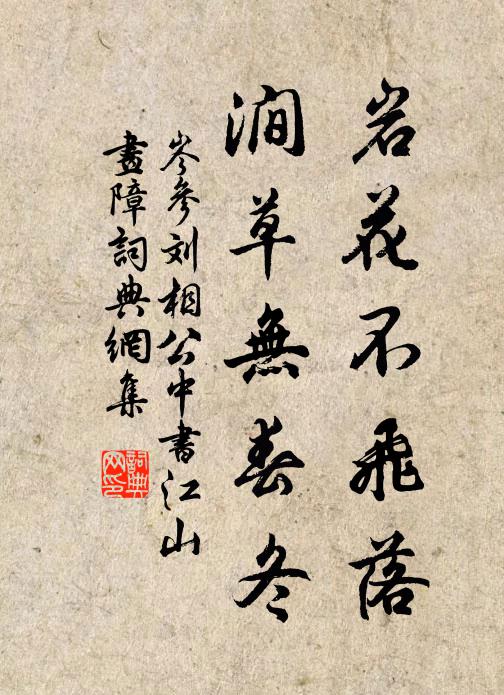 岩花不飛落
澗草無春冬
岑參刘相公中書江山
畫障詞典網集
詞典
网印